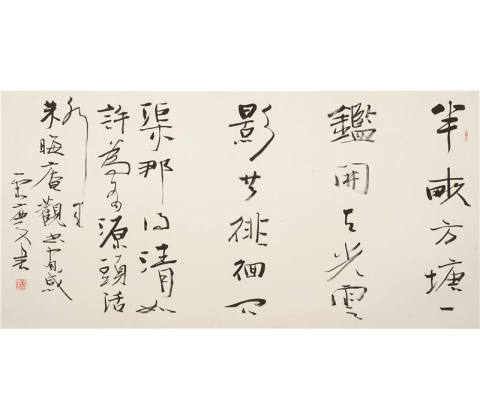 半畝方塘一
鑑開天光雲
影共徘徊問
渠那得清如
許為有源頭活
水來
朱晦庵觀書有感